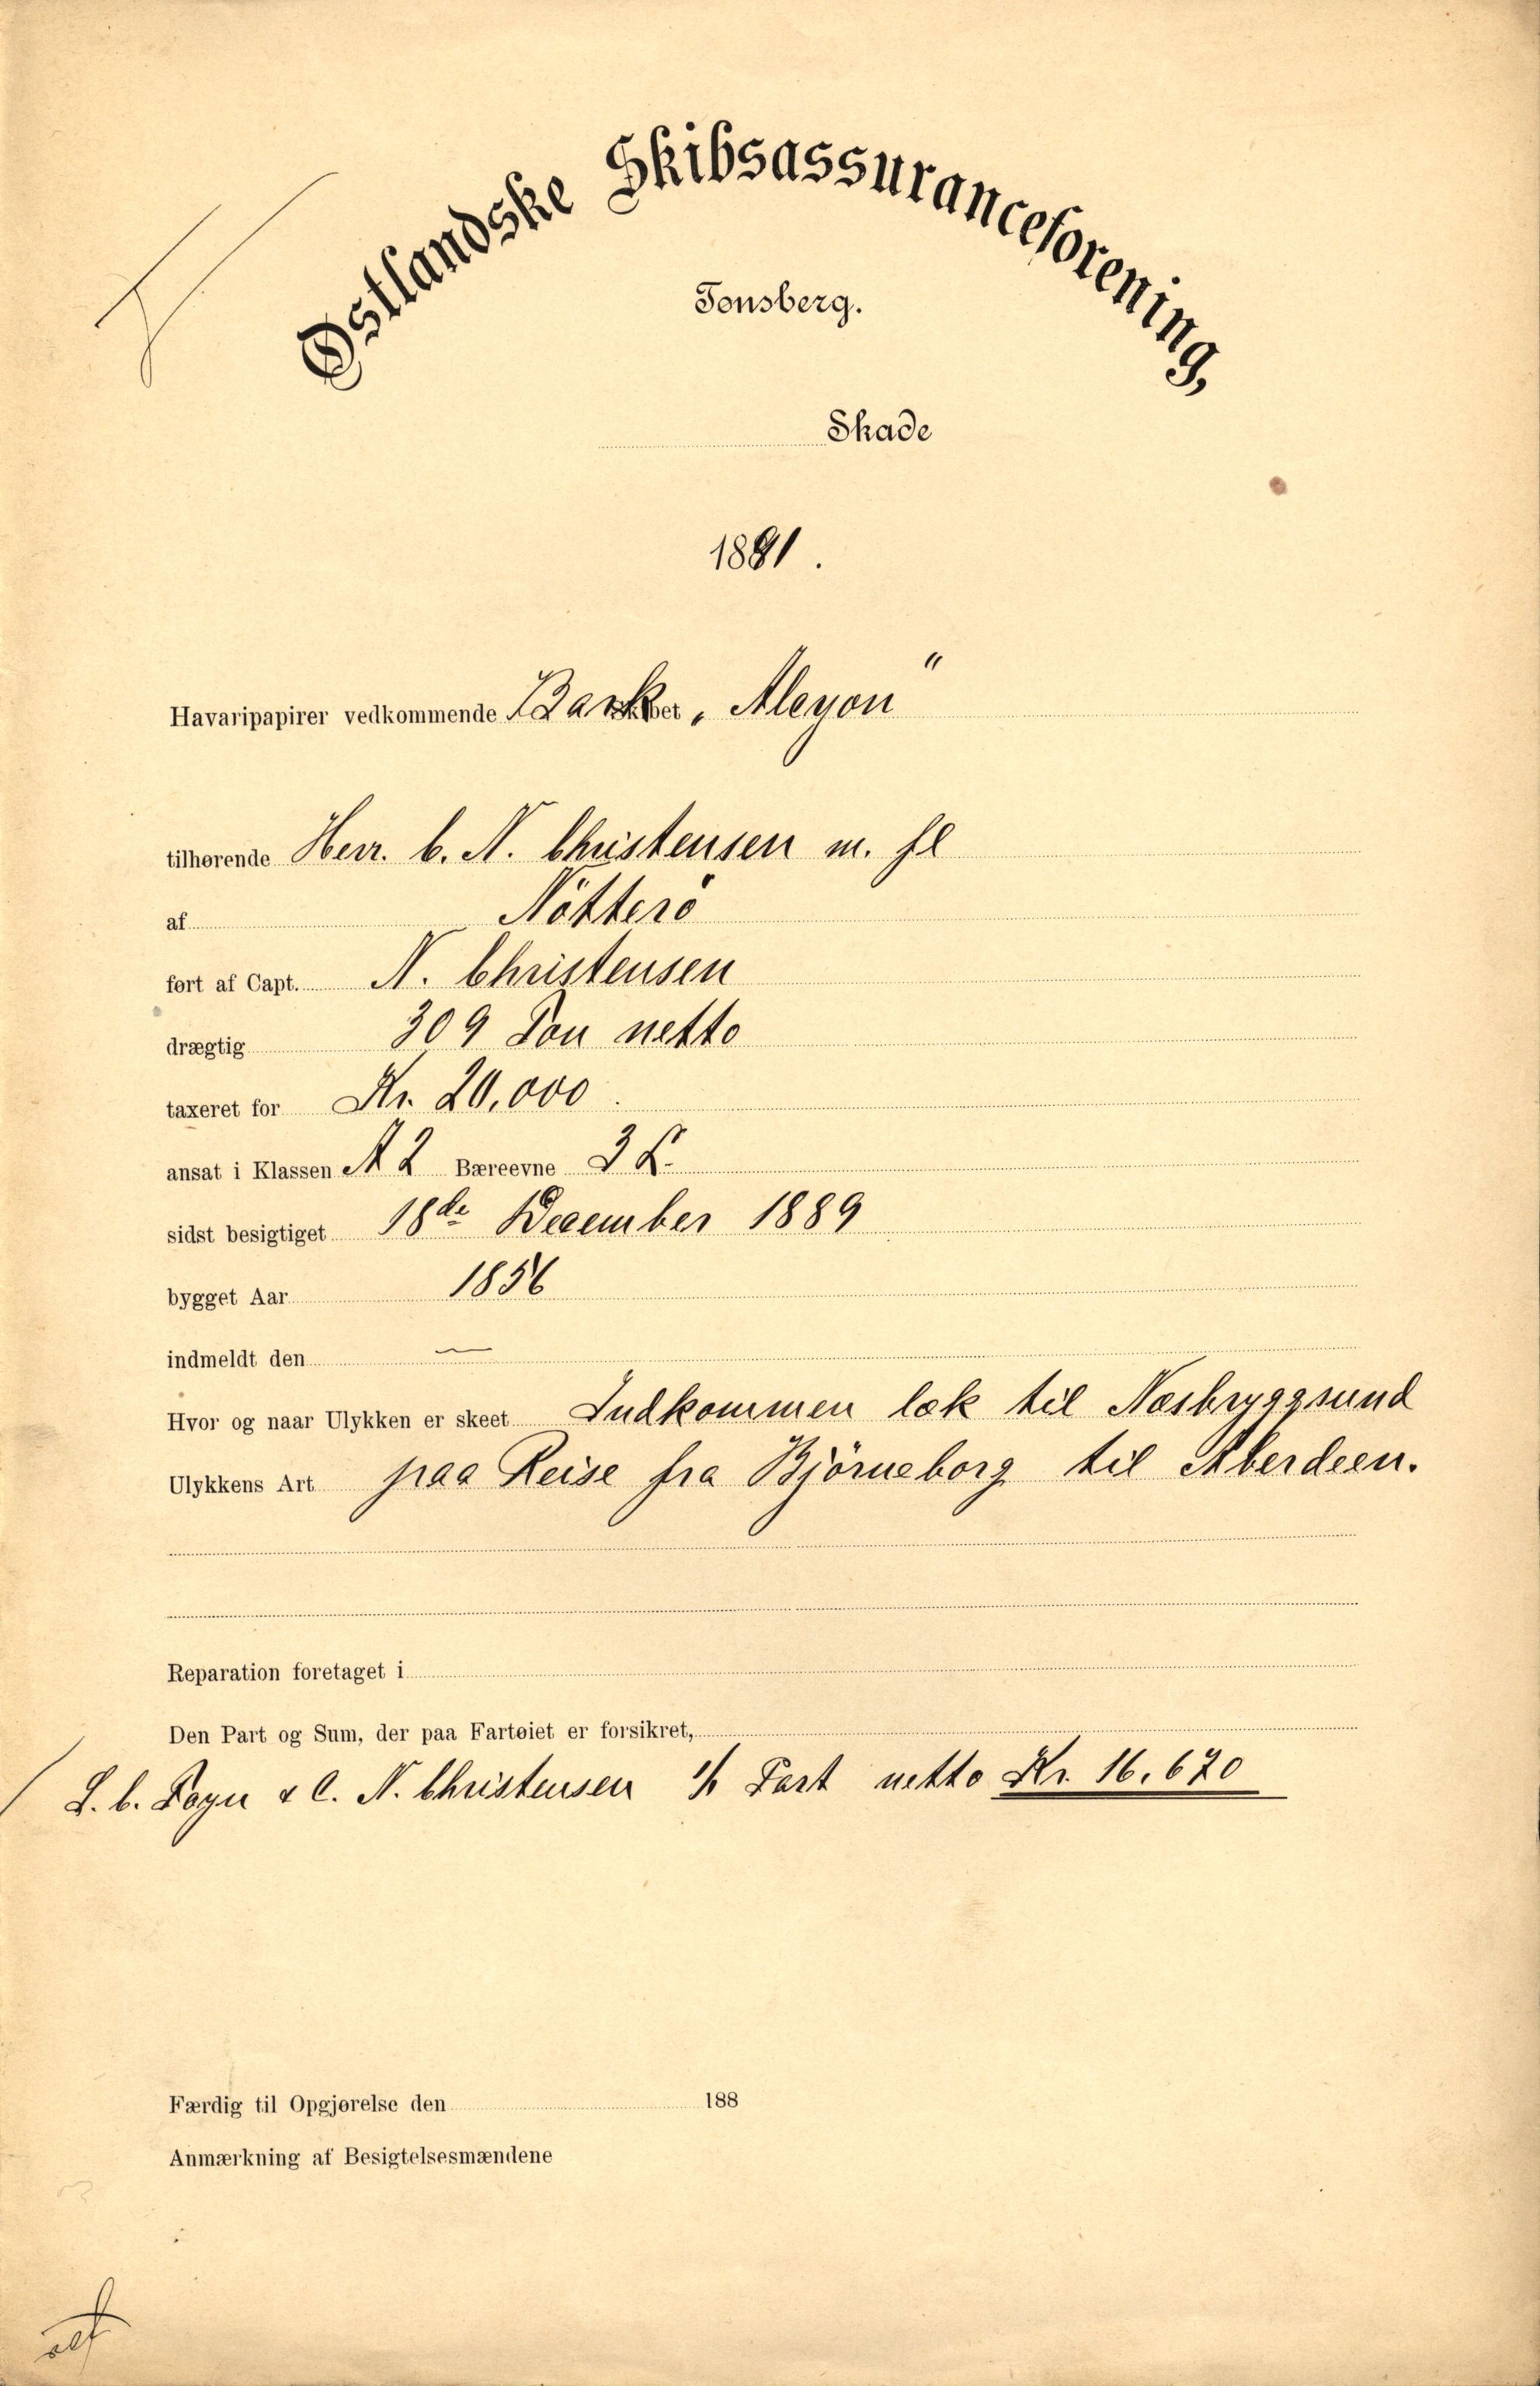 Østlandske Skibsassuranceforening,
Tønsberg.
Skade
1891.
Havaripapirer vedkommende Bark "Alcyon"
tilhørende Herr. C. N. Christensen m. fl
af Nötterö
ført af Capt. N. Christensen
drægtig 309 Ton netto
taxeret for Kr. 20,000.
ansat i Klassen A 2 Bæreevne
sidst besigtiget 18de December 1889
bygget Aar 1856
indmeldt den —
Hvor og naar Ulykken er skeet Indkommen læk til Næsbryggsund
Ulykkens Art paa Reise fra Björneborg til Aberdeen.
Reparation foretaget i
Den Part og Sum, der paa Fartøiet er forsikret,
& C. N. Christensen 1/1 Part netto Kr. 16.670
Færdig til Opgjørelse den 188
Anmærkning af Besigtelsesmændene